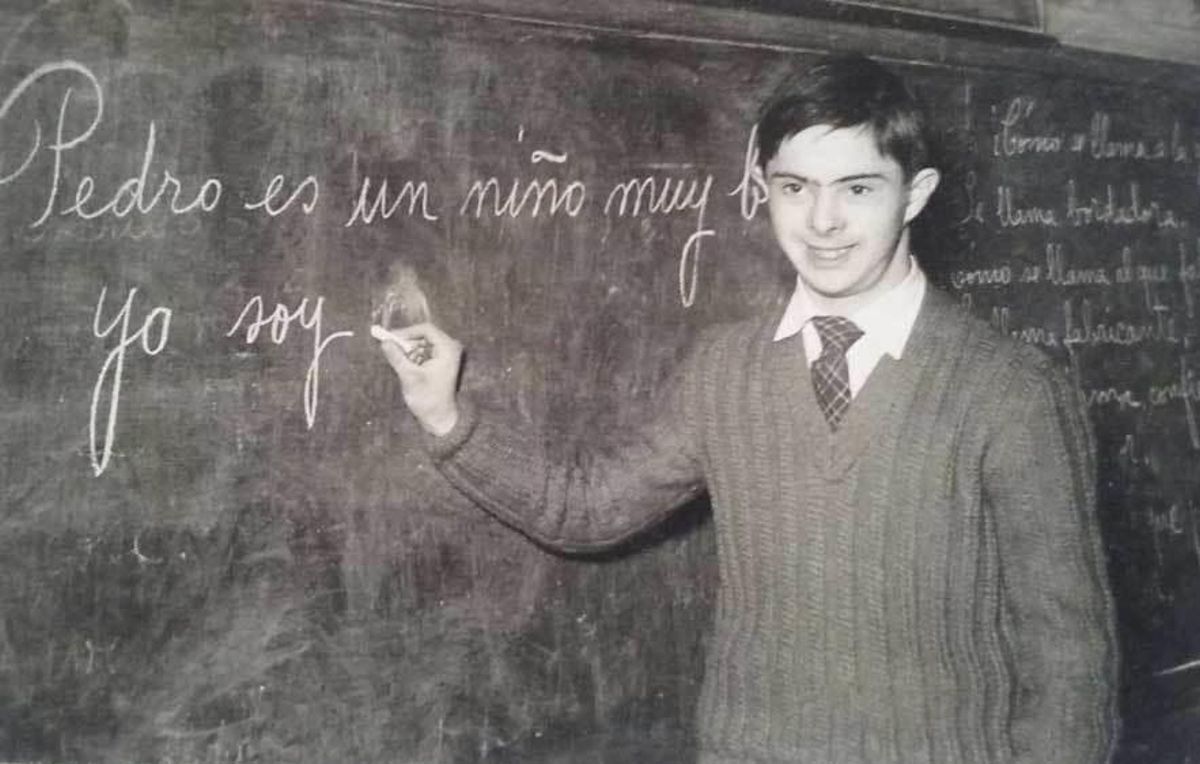 Pedro es un niño muy b
yo soy
¿Cómo se llama a la
Se llama bordadora.
cómo se llama el que
llama fabricante.